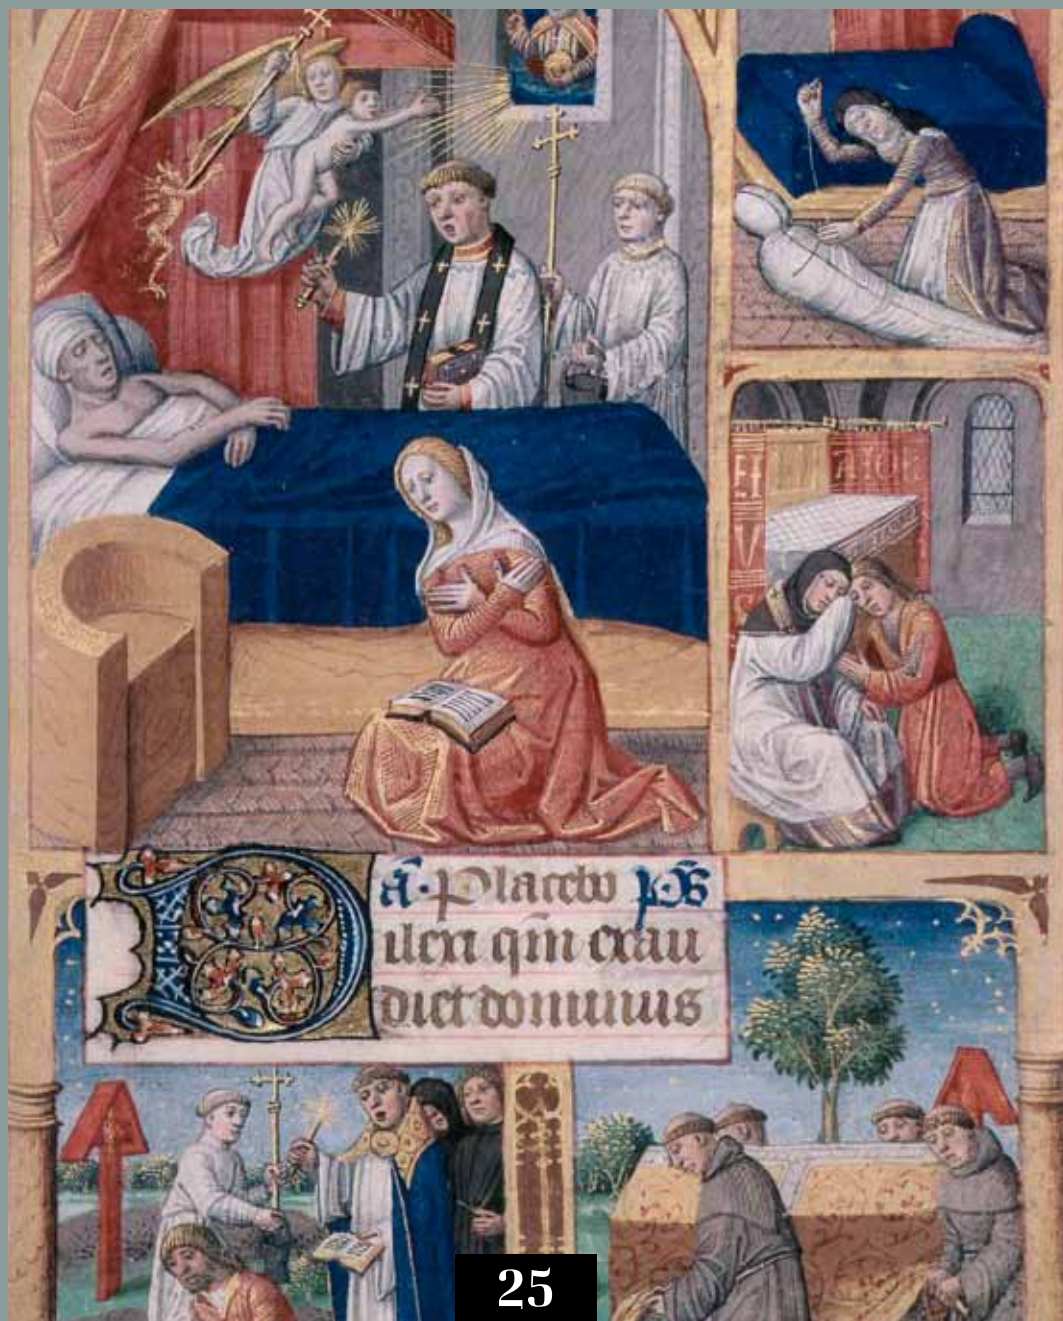 ā· Placebo pŝ
Dilexi qm̄ exau
diet dominus
25